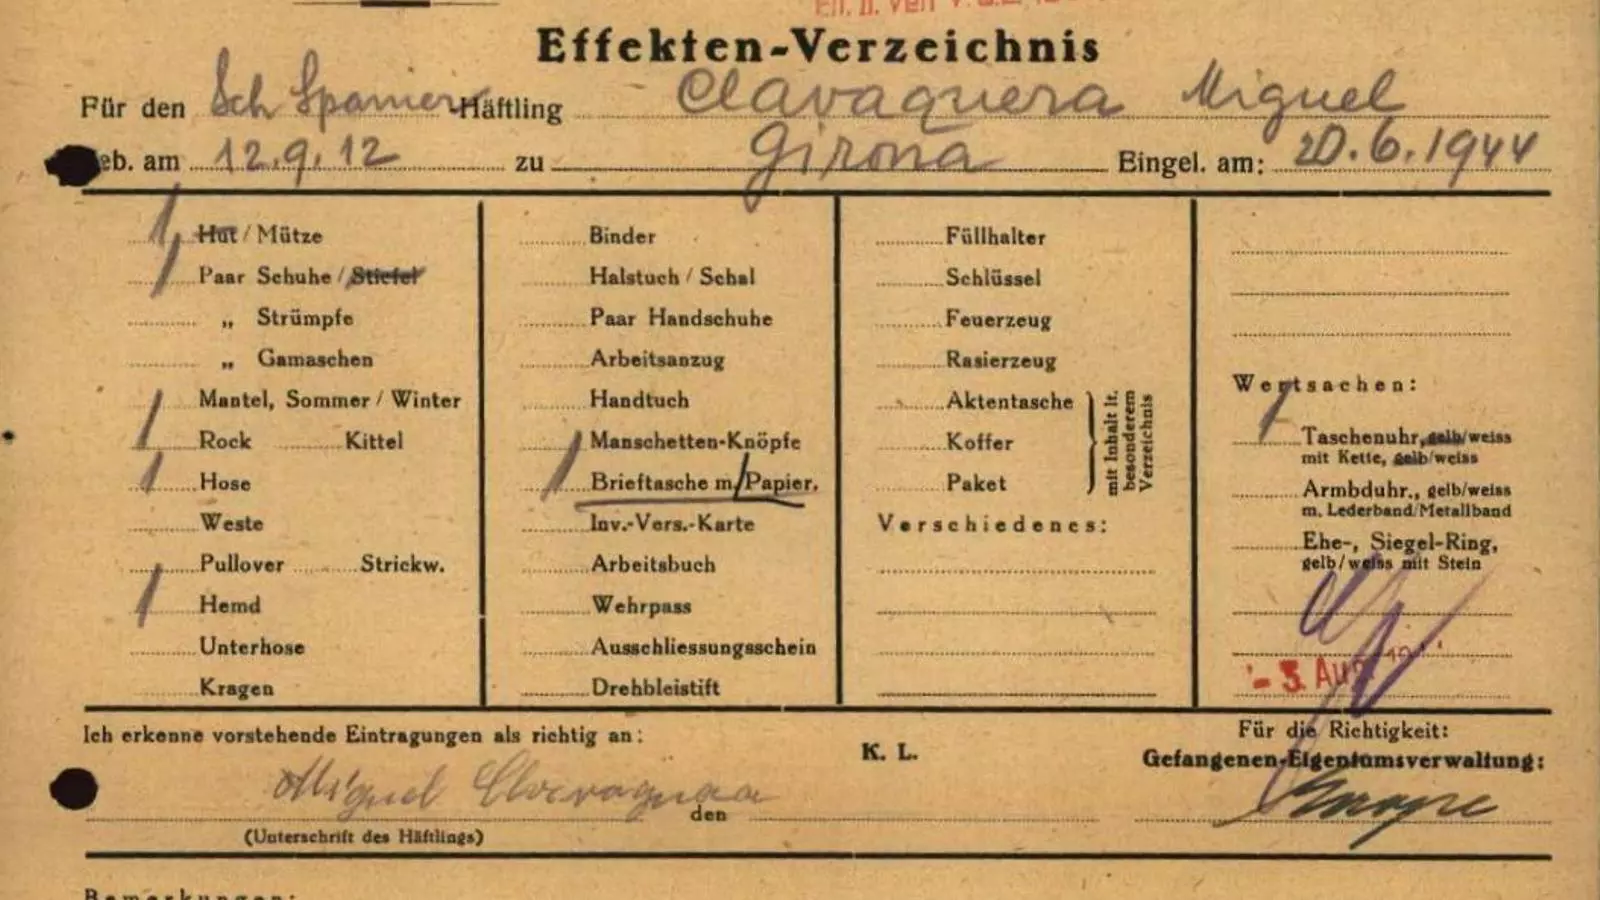 Effekten-Verzeichnis
Für den Sch Spanier-Häftling Clavaguera Miguel
eb. am 12.9.12 zu Girona Eingel. am: 20.6.1944
1 Hut / Mütze
1 Paar Schuhe / Stiefel
„ Strümpfe
„ Gamaschen
Mantel, Sommer / Winter
1 Rock Kittel
1 Hose
Weste
Pullover Strickw.
1 Hemd
Unterhose
Kragen
Binder
Halstuch / Schal
Paar Handschuhe
Arbeitsanzug
Handtuch
Manschetten-Knöpfe
1 Brieftasche m/Papier.
Inv.-Vers.-Karte
Arbeitsbuch
Wehrpass
Ausschliessungsschein
Drehbleistift
Füllhalter
Schlüssel
Feuerzeug
Rasierzeug
Aktentasche
Koffer
Paket
mit Inhalt lt.
besonderem
Verzeichnis
Verschiedenes:
Wertsachen:
1 Taschenuhr, gelb/weiss
mit Kette, gelb/weiss
Armbduhr., gelb/weiss
m. Lederband/Metallband
Ehe-, Siegel-Ring,
gelb/weiss mit Stein
- 3. Aug. 19
Ich erkenne vorstehende Eintragungen als richtig an:
K. L.
Für die Richtigkeit:
Gefangenen-Eigentumsverwaltung:
Miguel Clavaguera
den
(Unterschrift des Häftlings)
Bemerkungen: